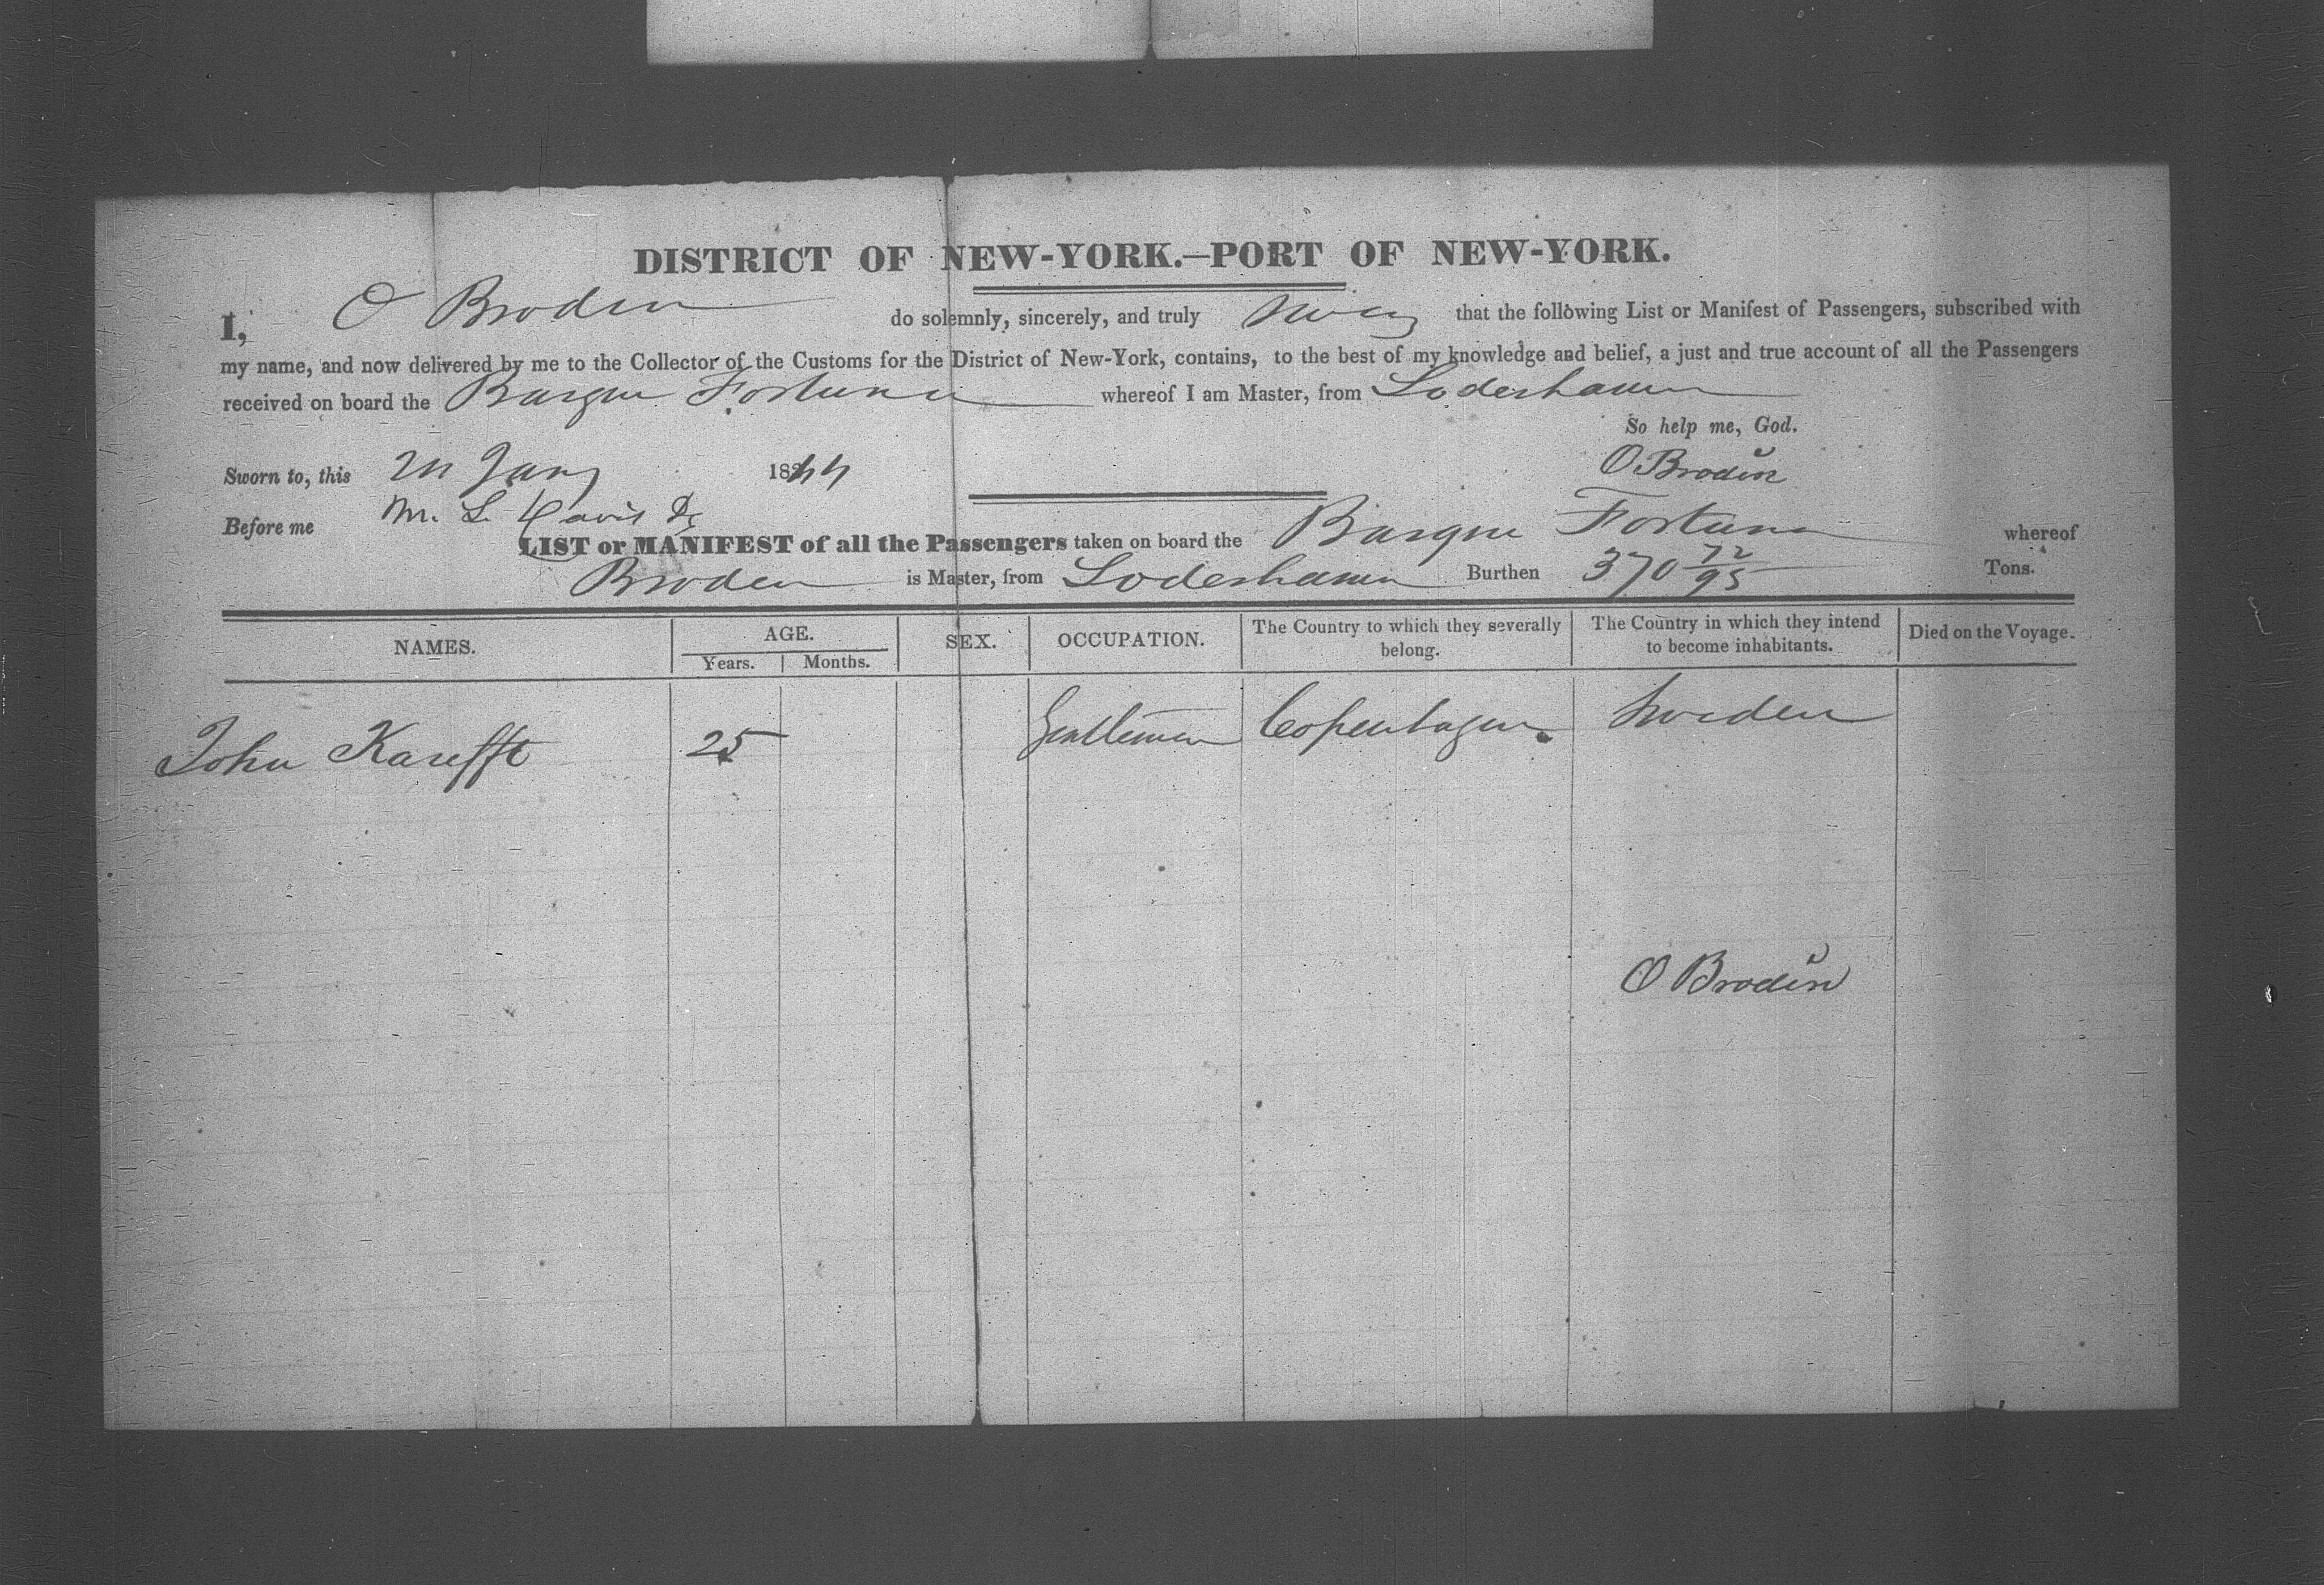 DISTRICT OF NEW-YORK.—PORT OF NEW-YORK.
I, O Broden do solemnly, sincerely, and truly swear that the following List or Manifest of Passengers, subscribed with
my name, and now delivered by me to the Collector of the Customs for the District of New-York, contains, to the best of my knowledge and belief, a just and true account of all the Passengers
received on board the Barque Fortuna whereof I am Master, from Soderhamn
So help me, God.
Sworn to, this Jany 1844
O Brodin
Before me M. L. Davis
LIST or MANIFEST of all the Passengers taken on board the Barque Fortuna whereof
Broden is Master, from Soderhamn Burthen 370 72/95 Tons.
NAMES. AGE. SEX. OCCUPATION. The Country to which they severally belong. The Country in which they intend to become inhabitants. Died on the Voyage.
Years. Months.
John 25 Gentleman Copenhagen Sweden
O Brodin